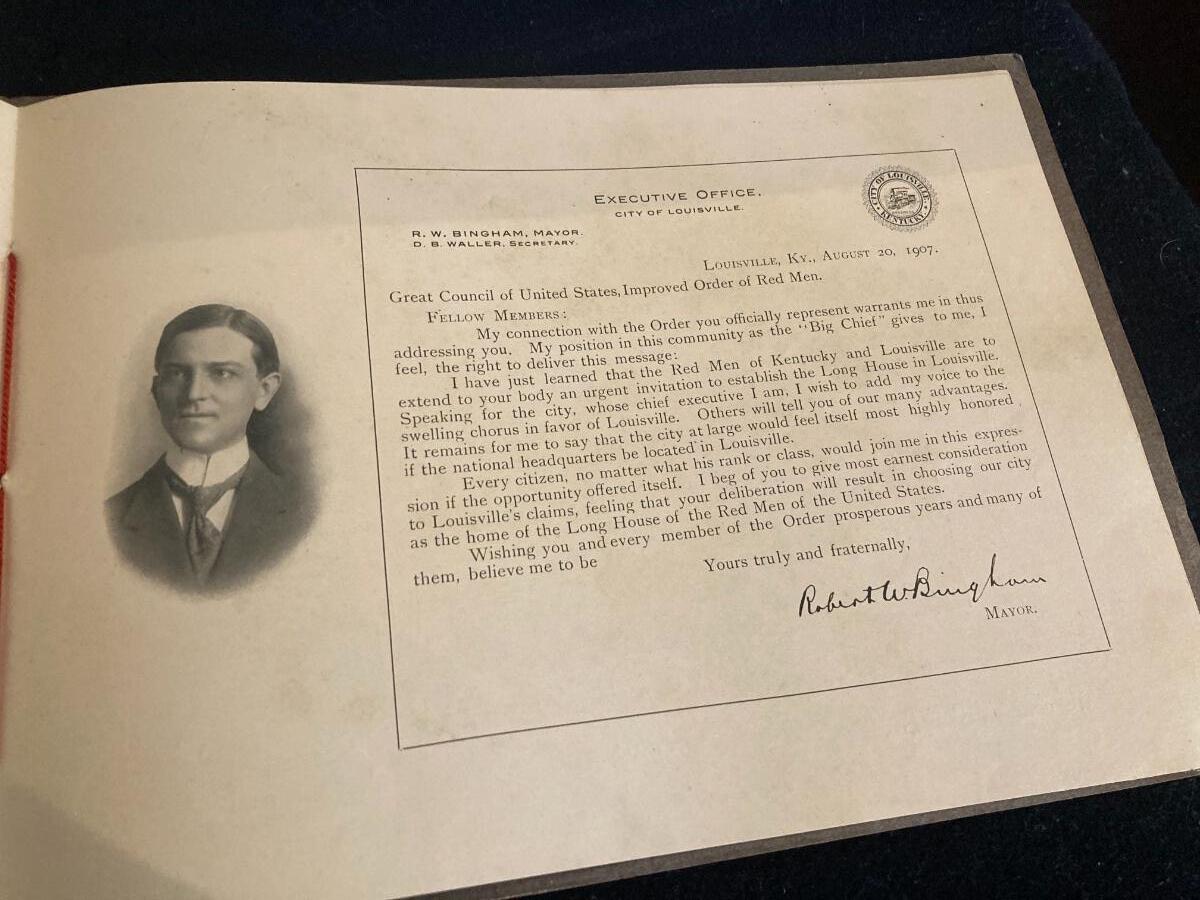 EXECUTIVE OFFICE.
CITY OF LOUISVILLE.
CITY OF LOUISVILLE
KENTUCKY
R. W. BINGHAM, MAYOR.
D. B. WALLER, SECRETARY.
LOUISVILLE, KY., AUGUST 20, 1907.
Great Council of United States, Improved Order of Red Men.
FELLOW MEMBERS:
My connection with the Order you officially represent warrants me in thus
addressing you. My position in this community as the "Big Chief" gives to me, I
feel, the right to deliver this message:
I have just learned that the Red Men of Kentucky and Louisville are to
extend to your body an urgent invitation to establish the Long House in Louisville.
Speaking for the city, whose chief executive I am, I wish to add my voice to the
swelling chorus in favor of Louisville. Others will tell you of our many advantages.
It remains for me to say that the city at large would feel itself most highly honored
if the national headquarters be located in Louisville.
Every citizen, no matter what his rank or class, would join me in this expres-
sion if the opportunity offered itself. I beg of you to give most earnest consideration
to Louisville's claims, feeling that your deliberation will result in choosing our city
as the home of the Long House of the Red Men of the United States.
Wishing you and every member of the Order prosperous years and many of
them, believe me to be
Yours truly and fraternally,
Robert W. Bingham
MAYOR.